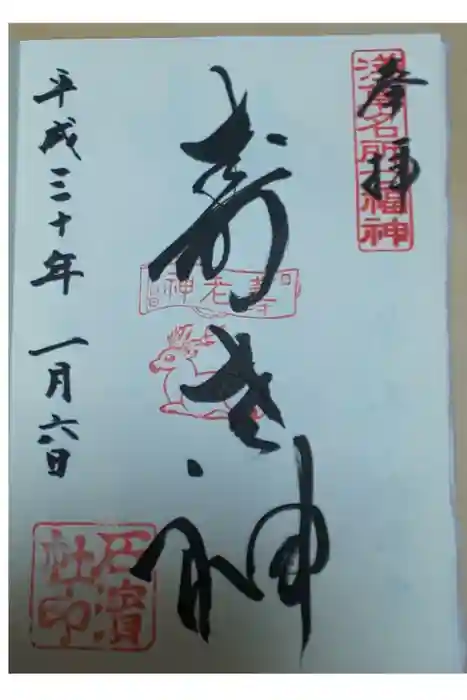 奉拝
浅草名所七福神
寿老神
壽老神
平成三十年 一月六日
石濱
社印